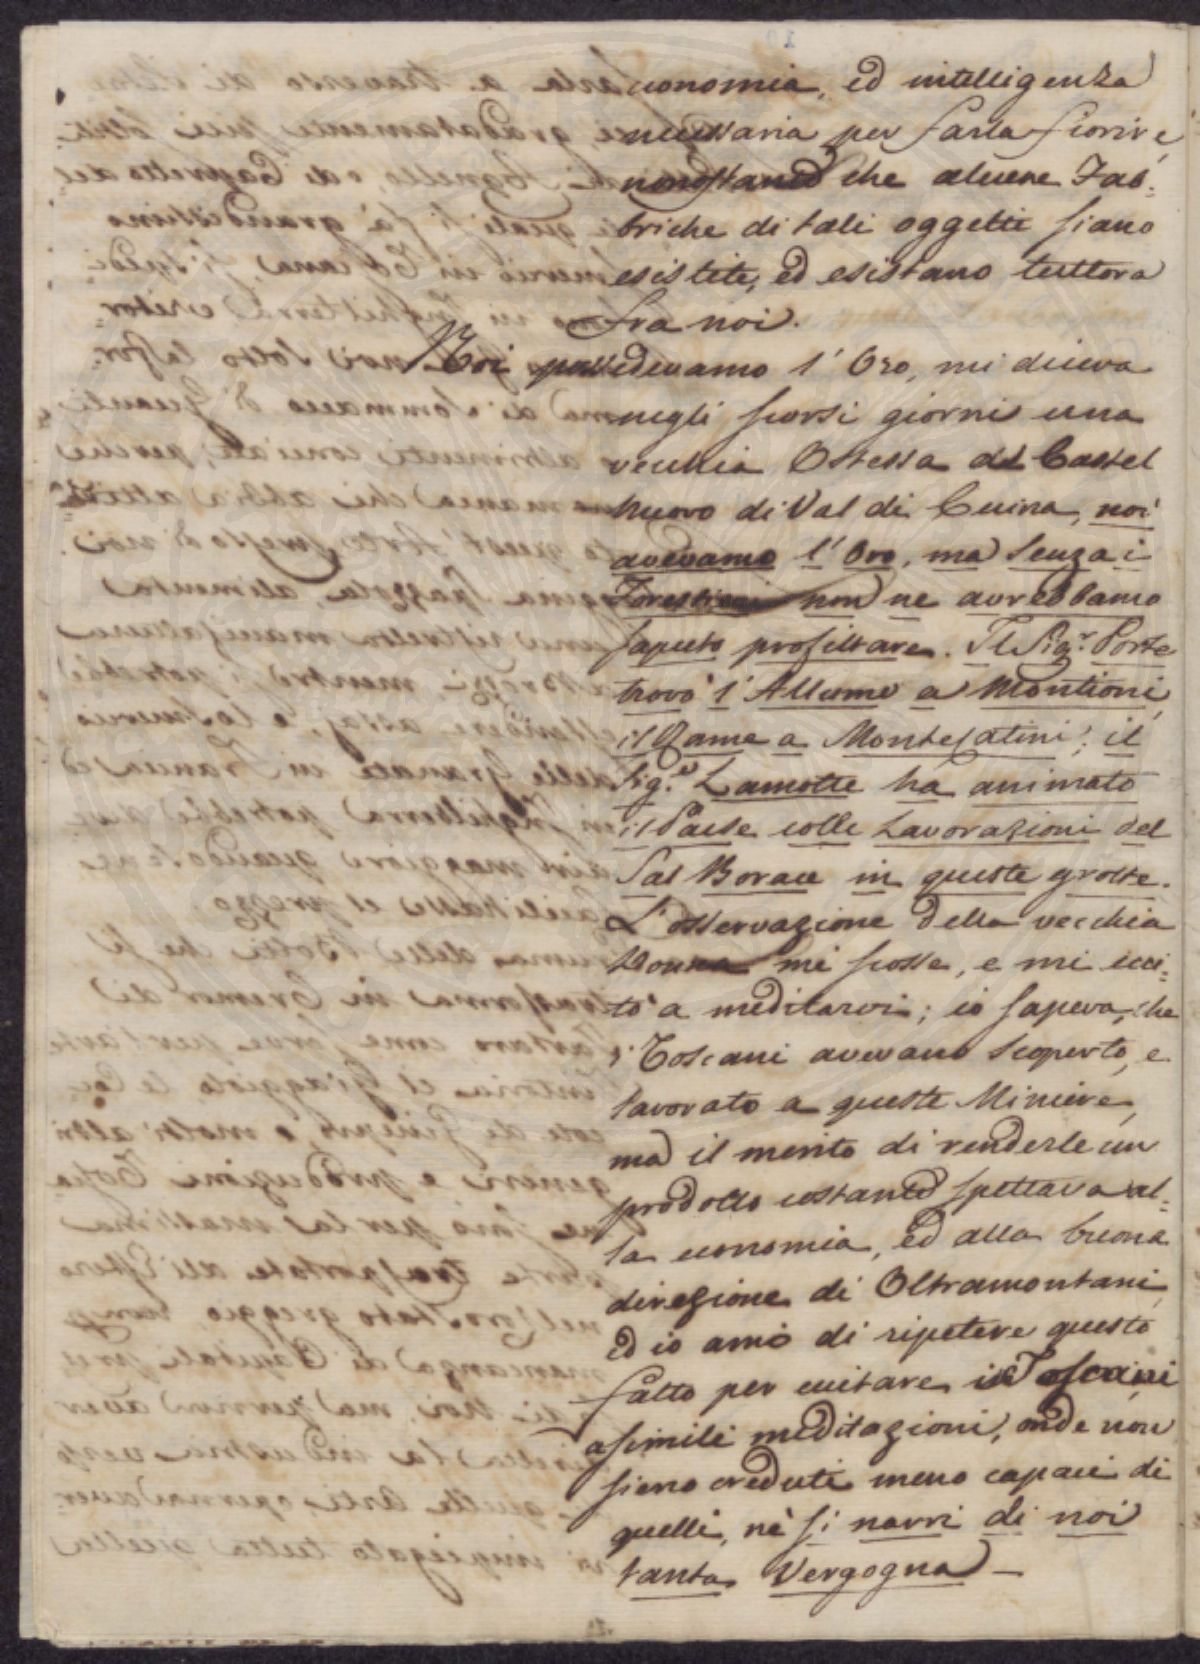 economia, ed intelligenza
necessaria per farla fiorire,
nonostante che alcune Fab=
briche di tali oggetti siano
esistite, ed esistano tuttora
fra noi.
Noi possedevamo l'Oro, mi diceva
negli scorsi giorni una
vecchia Ostessa del Castel
nuovo di Val di Cecina, noi
avevamo l'Oro, ma senza i
Forestieri non ne avrebbamo
saputo profittare. Il Sig.r Porte
trovò l'Allume a Montioni,
il Rame a Montecatini; il
Sig.r Lamotte ha animato
il Paese colle Lavorazioni del
Sal Borace in queste grotte.
L'osservazione della vecchia
Donna mi scosse, e mi ecci=
tò a meditarvi; io sapeva, che
i Toscani avevano scoperto, e
lavorato a queste Miniere,
ma il merito di renderle un
prodotto costante spettava al=
la economia, ed alla buona
direzione di Oltramontani,
ed io amo di ripetere questo
fatto per eccitare i Toscani
a simili meditazioni, onde non
sieno creduti meno capaci di
quelli, nè si narri di noi
tanta Vergogna —